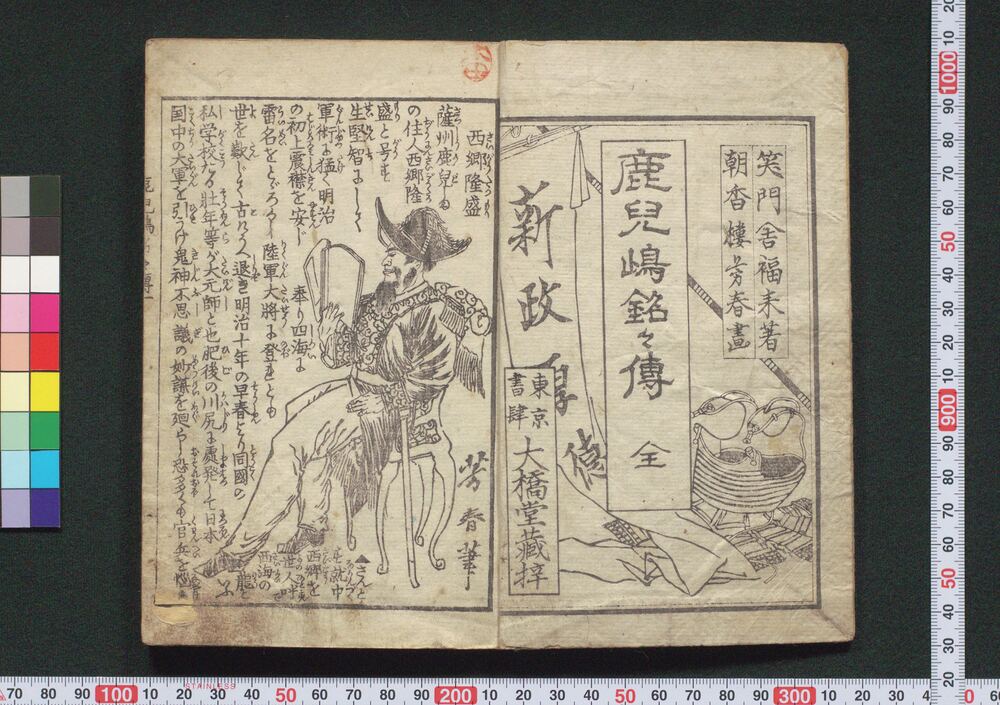 笑門舎福来著
朝香樓芳春畫
鹿兒嶋銘々傳 全
新政
厚
德
東京
書肆
大橋堂藏梓
西郷隆盛
薩州鹿兒島
の住人西郷隆
盛と号す
生堅智にして
軍術に猛く明治
の初上震襟を安じ
奉り四海に
雷名をとゞろかし陸軍大將に登
世を歎じて古に退き明治十年の早春より同國の
私学校たる壮年等が大元師と也肥後の川尻に處発して日本
国中の大軍を引うけ鬼神不思議の妙謀を廻らし恐多くも官兵を
▲さんと
就中
西郷を
世人
西海の
龍と
いふ
芳春筆
STAINLESS
70 80 90 100 10 20 30 40 50 60 70 80 90 200 10 20 30 40 50 60 70 80 90 300 10 20 30 40
20 10 1000 90 80 70 60 50 40 30 20 10 900 90 80 70 60 50 40 30 20